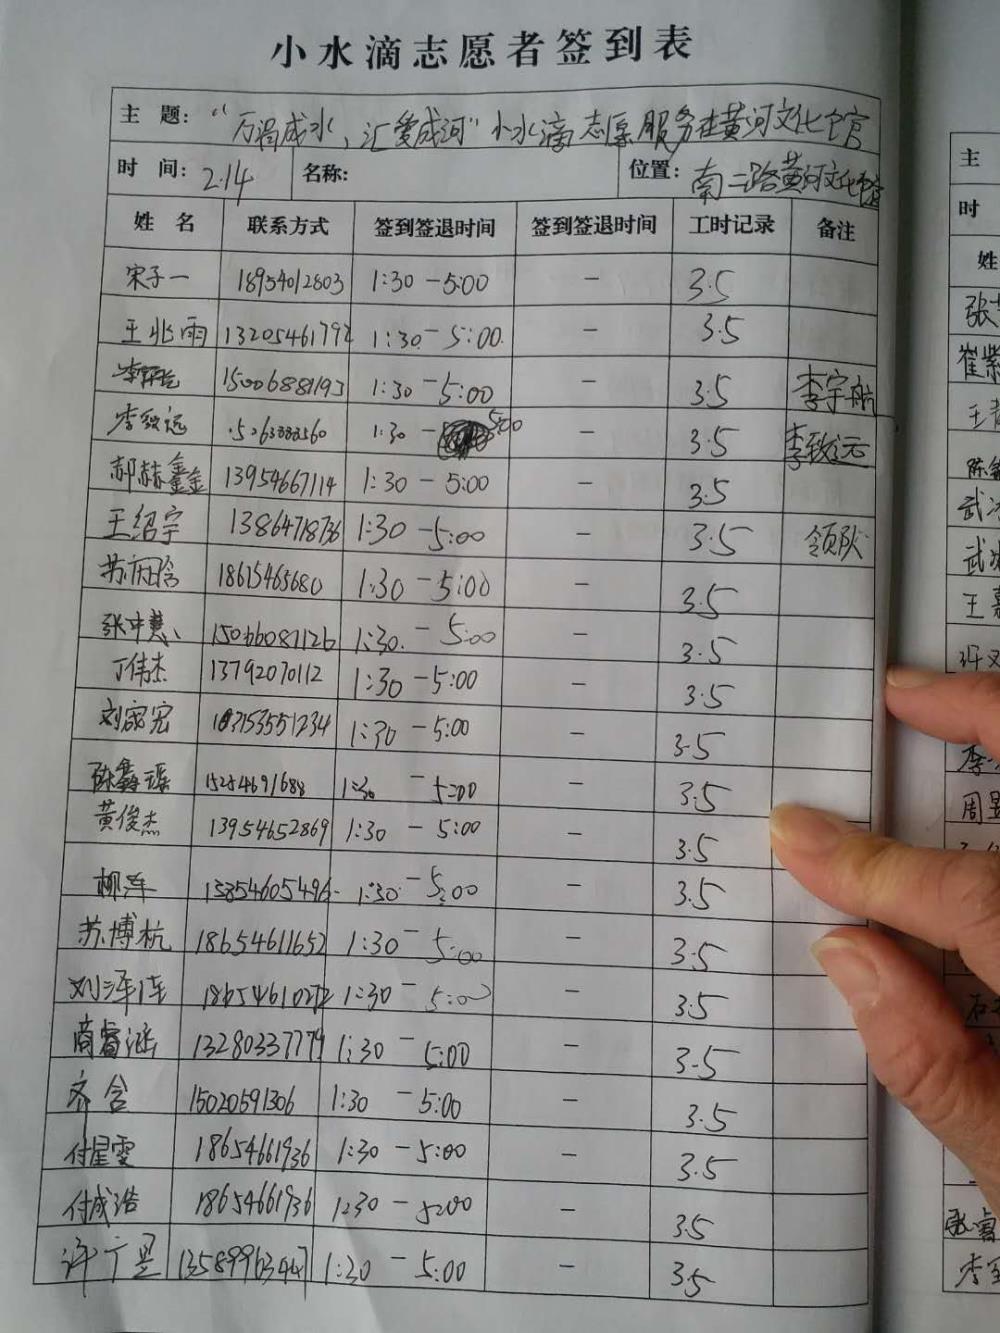 小水滴志愿者签到表
主 题: “万涓成水，汇爱成河”小水滴志愿服务在黄河文化馆
时 间: 2.14 名称: 位置: 南二路黄河文化馆
姓 名 联系方式 签到签退时间 签到签退时间 工时记录 备注
宋子一 18954012803 1:30 - 5:00 - 3.5
王兆雨 13205461792 1:30 - 5:00 - 3.5
15006881193 1:30 - 5:00 - 3.5 李宇航
李致远 1:30 - 5:00 - 3.5 李致远
郝赫鑫 13954667114 1:30 - 5:00 - 3.5
王绍宇 13864718736 1:30 - 5:00 - 3.5 领队
18615465680 1:30 - 5:00 - 3.5
张中慧 15066087126 1:30 - 5:00 - 3.5
丁伟杰 13792070112 1:30 - 5:00 - 3.5
刘家宏 1:30 - 5:00 - 3.5
陈鑫瑶 15254691688 1:30 - 5:00 - 3.5
黄俊杰 13954652869 1:30 - 5:00 - 3.5
13854605496 1:30 - 5:00 - 3.5
苏博杭 18654611652 1:30 - 5:00 - 3.5
1:30 - 5:00 - 3.5
商睿涵 13280337779 1:30 - 5:00 - 3.5
齐含 15020591306 1:30 - 5:00 - 3.5
付星雯 18654661936 1:30 - 5:00 - 3.5
付成浩 18654661936 1:30 - 5:00 - 3.5
许广昱 13589963447 1:30 - 5:00 - 3.5
主
时
姓
张
崔紫
王
陈
武
武
王
李
周
李